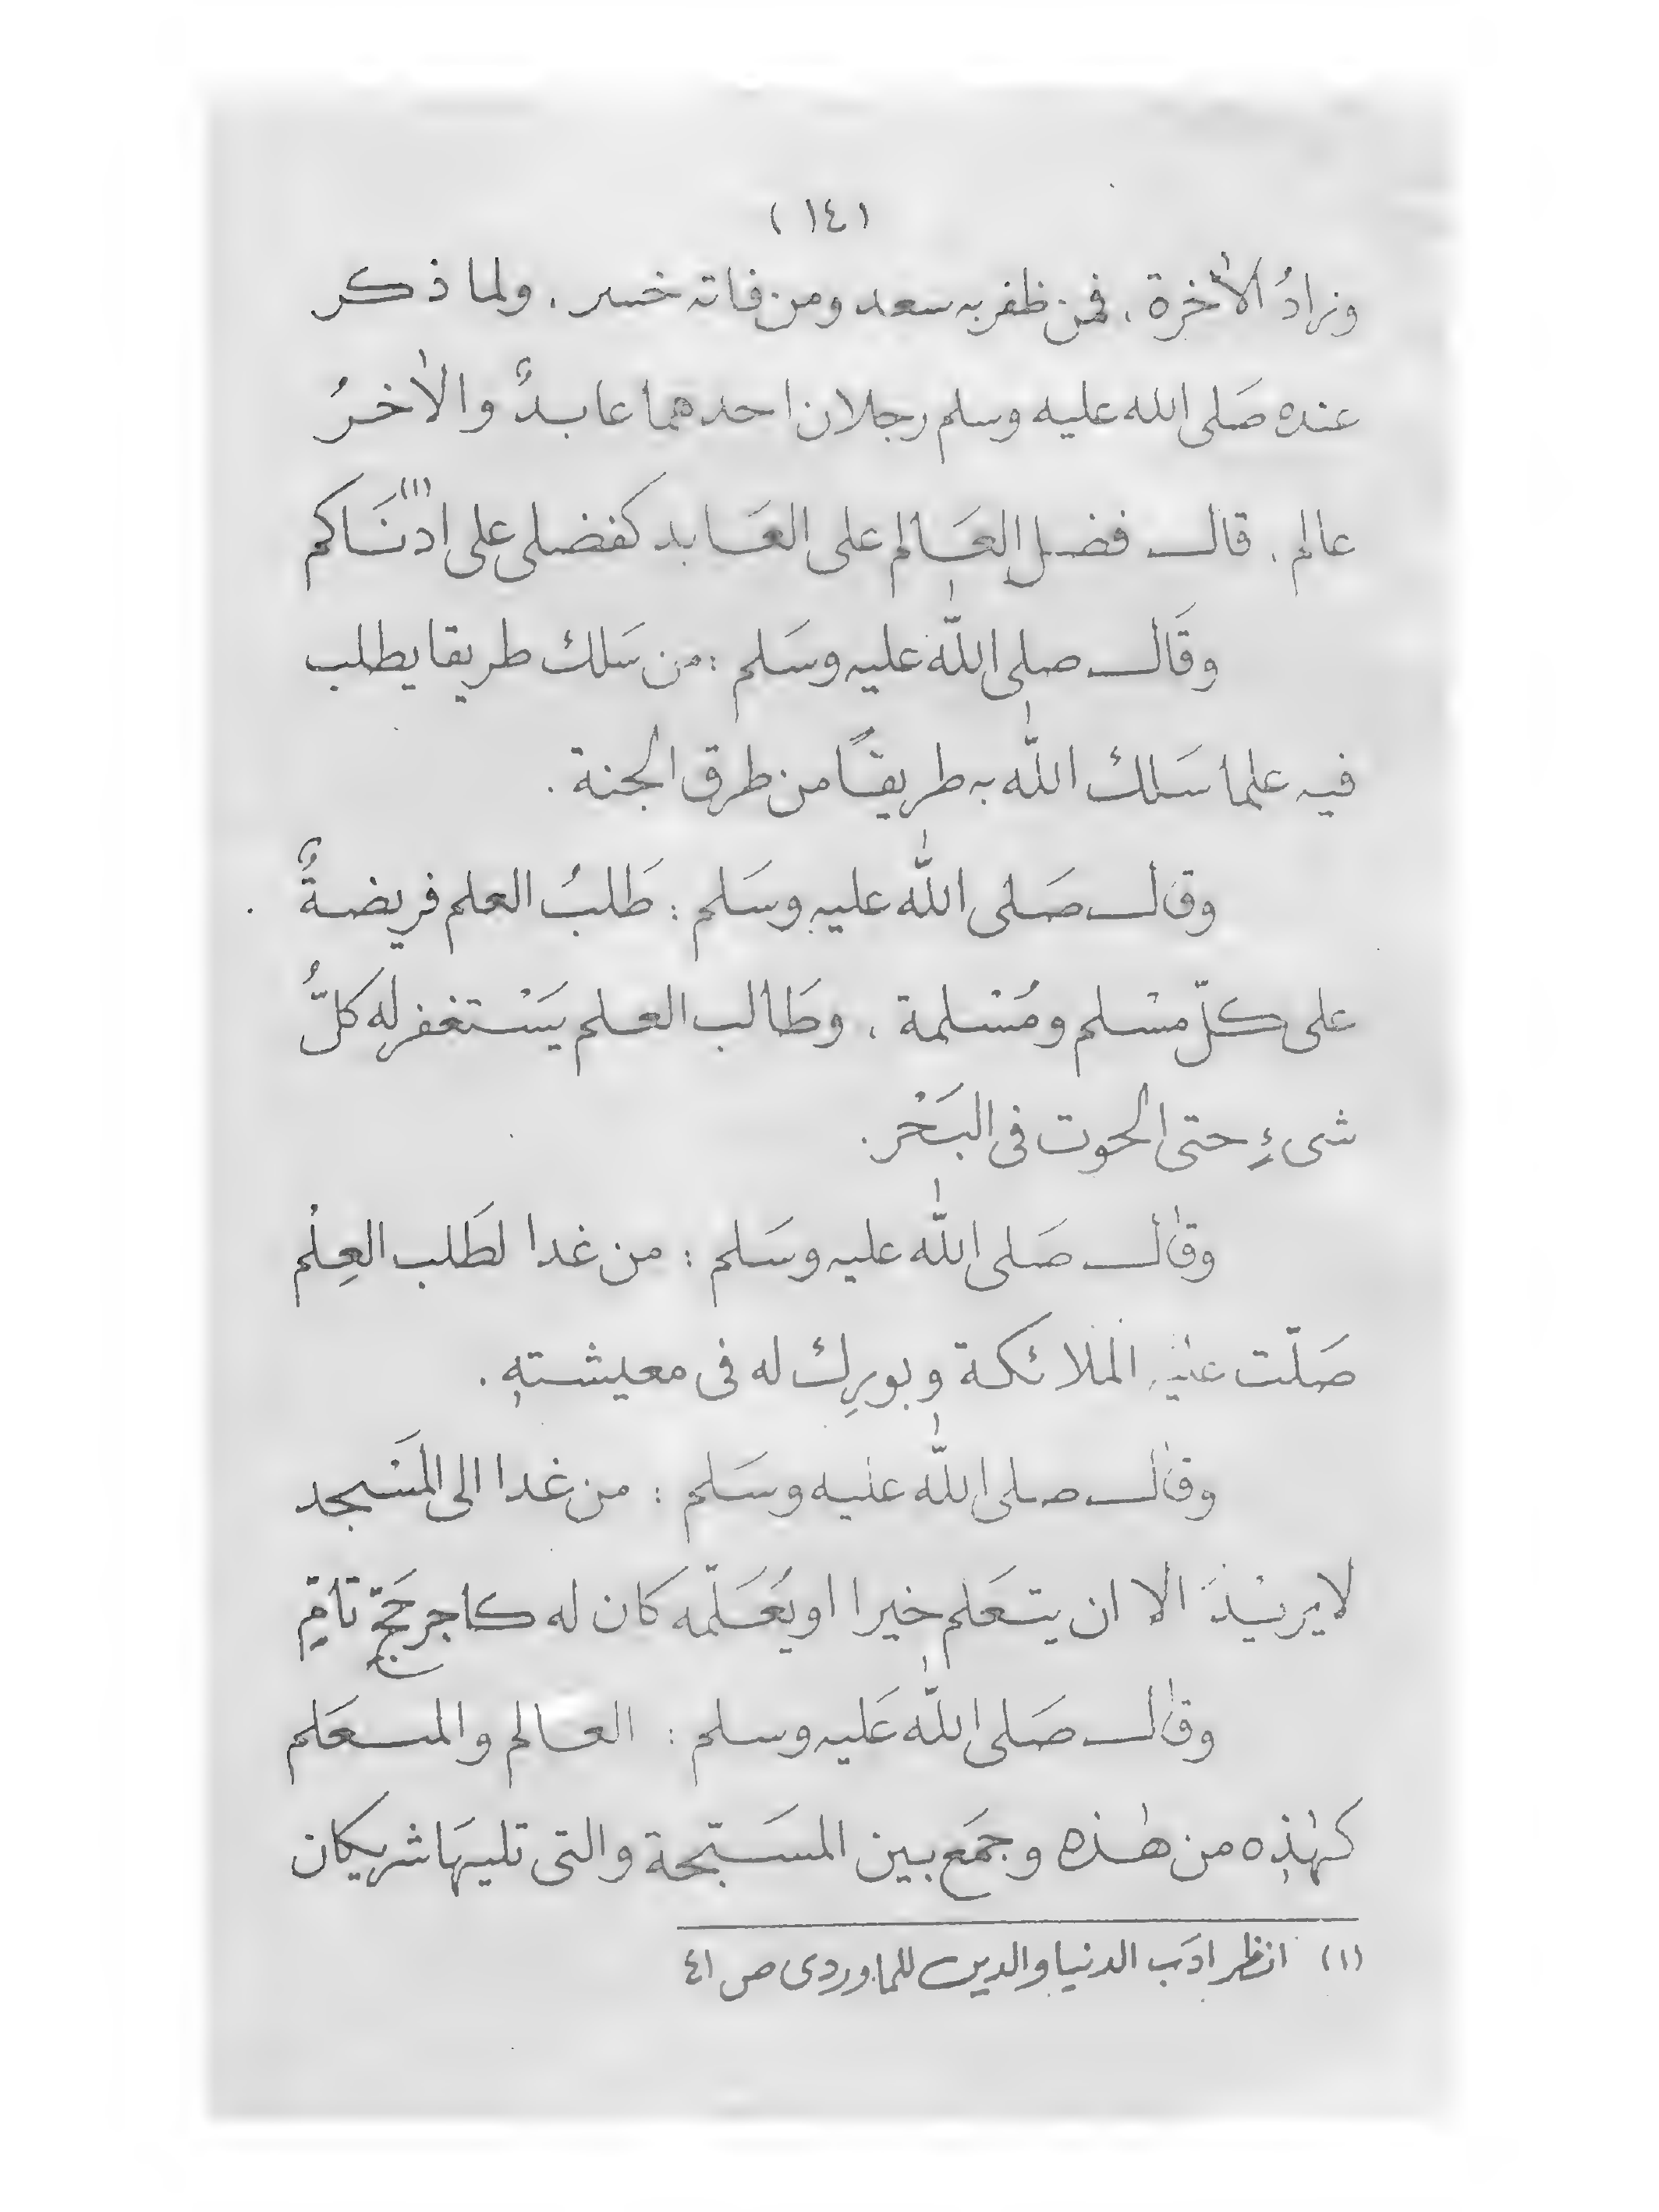 ( ١٤ )
وزادُ الاٰخرة . فمن ظفر به سعد ومن فاته خسر . ولما ذكر
عنده صَلى الله عليه وسلم رجلان احدهما عابدٌ والاٰخرُ
عالم . قال فضل العَالم على العَابد كفضلى على ادنَاكم (١)
وقَال صلى اللّٰه عليه وسَلم : من سَلك طريقا يطلب
فيه علما سَلك اللّٰه به طريقًا من طرق الجنة .
وقال صَلى اللّٰه عليه وسَلم : طَلبُ العلم فريضةٌ
على كلّ مسْلم ومُسْلمة . وطَالب العلم يَسْتغفر له كلُّ
شىءٍ حتى الحوت فى البَحْر .
وقال صَلى اللّٰه عليه وسَلم : من غدا لطَلب العِلْم
صَلّت عليه الملائكة وبورِك له فى معيشته .
وقال صلى اللّٰه عليه وسَلم : من غدا الى المَسْجد
لا يريْدُ الا ان يتعَلم خيرا او يُعَلّمه كان له كاجر حَجّ تامّ
وقال صَلى اللّٰه عَليه وسلم : العالم والمتعَلم
كهٰذه من هٰذه وجمَع بين المسَبّحة والتى تليهَا شريكان
(١) انظر ادَب الدنيا والدين للماوردى ص ٤١